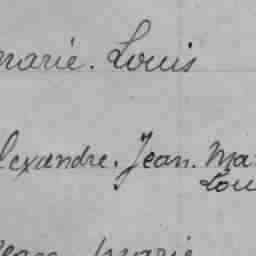 marie. Louis
lexandre. Jean. Ma
Lou
Jean marie